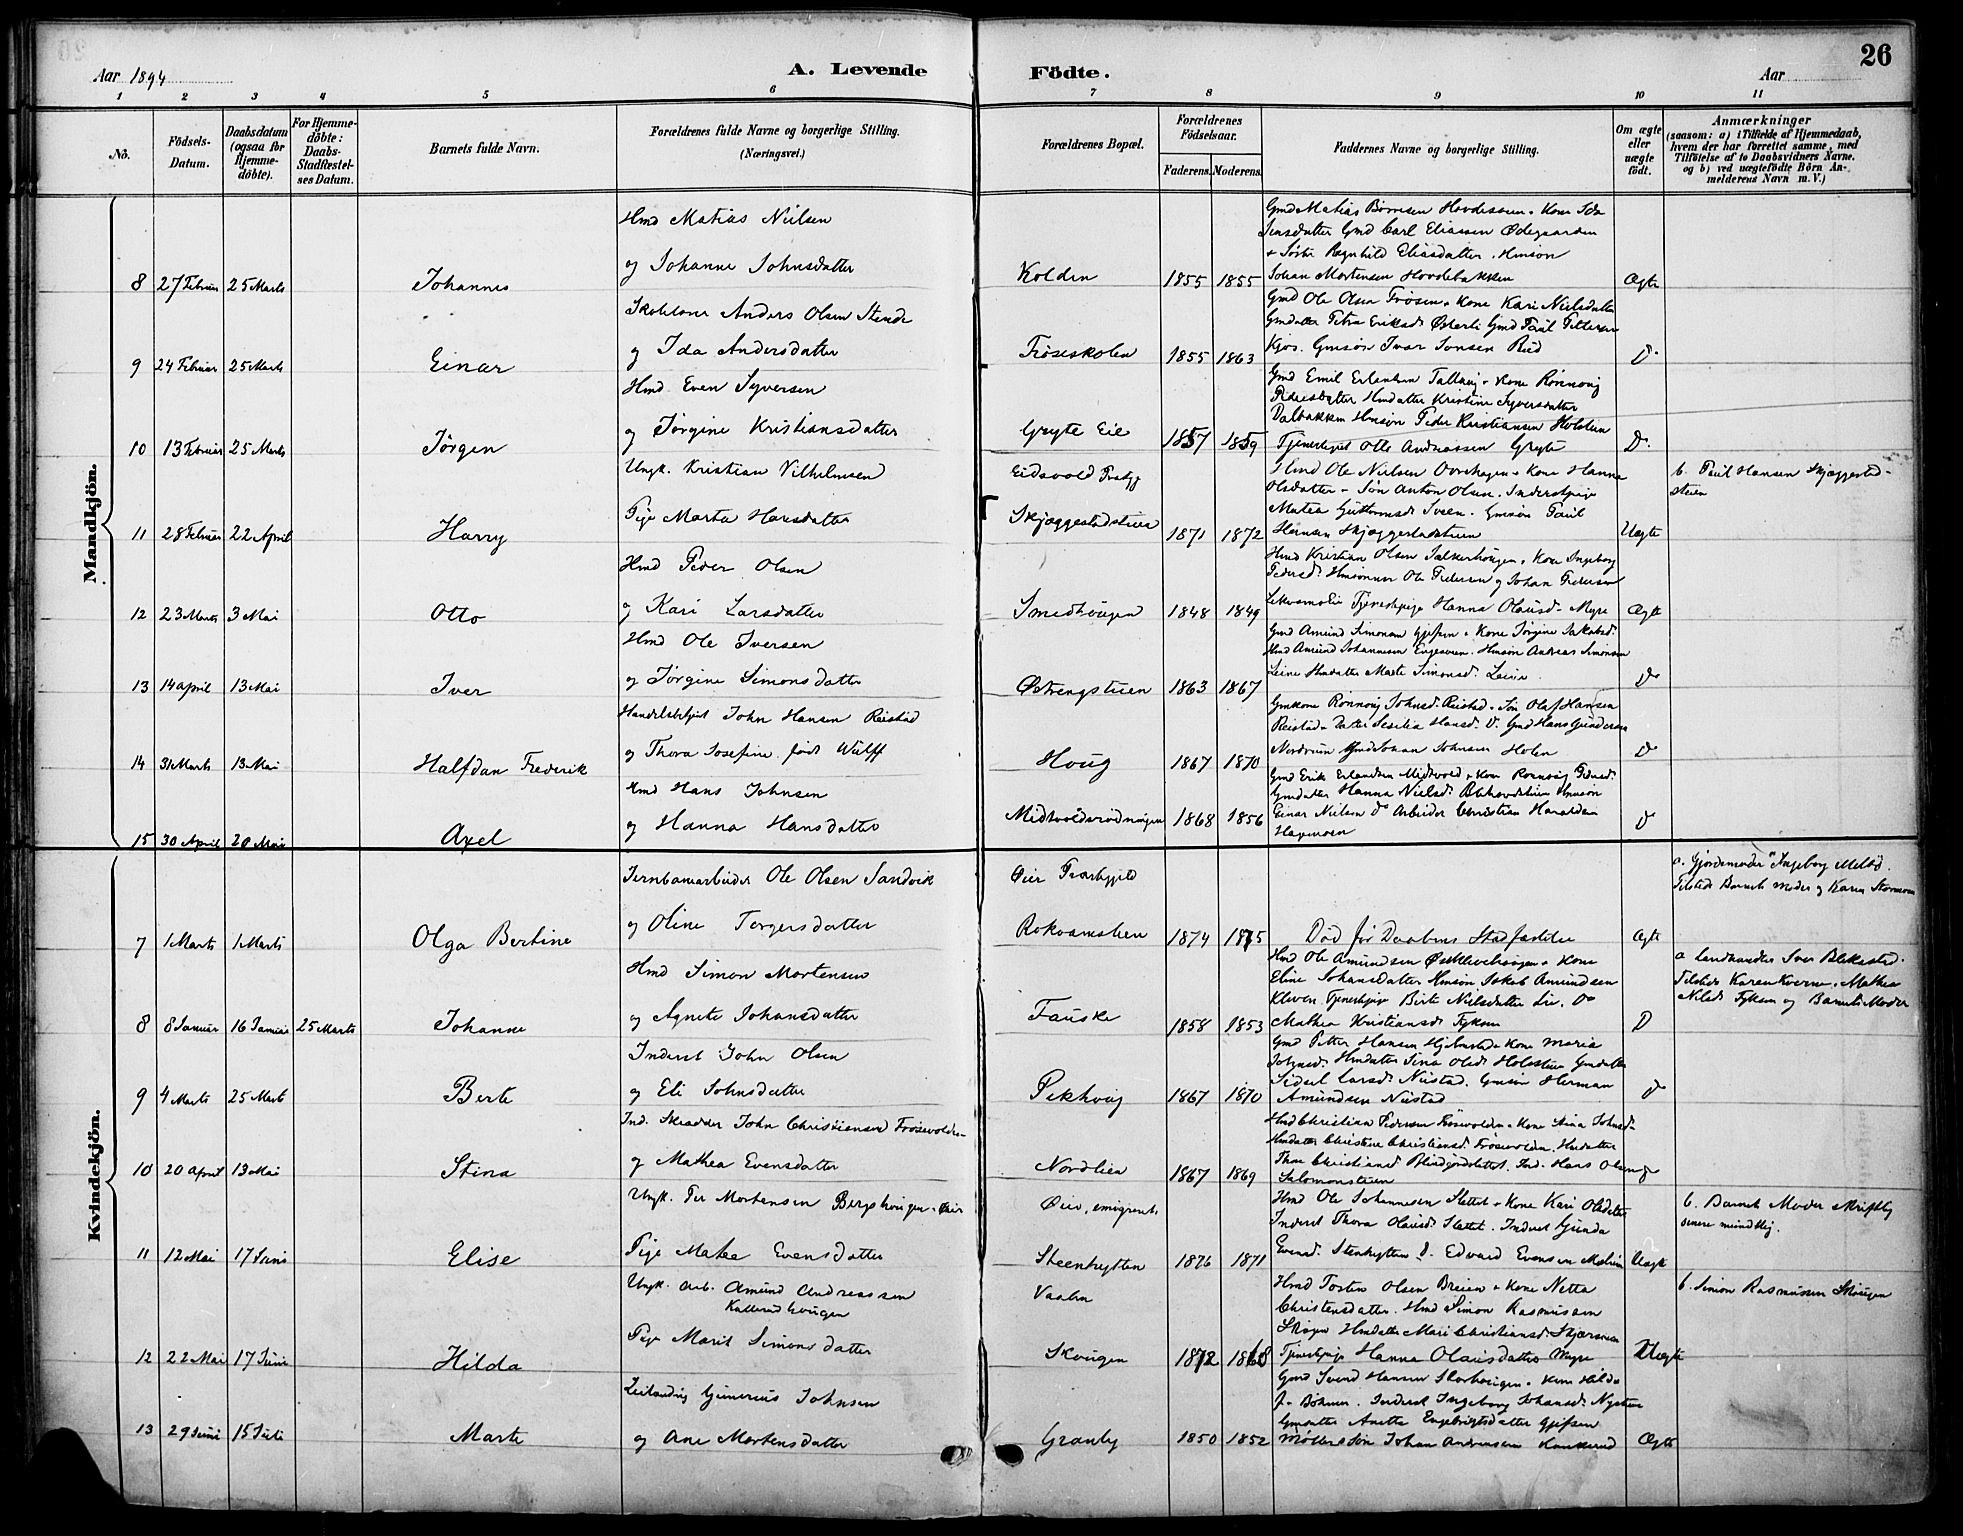 Aar 1894
A. Levende
Födte.
Aar
26
1 2 3 4 5 6 7 8 9 10 11
No.
Födsels-Datum.
Daabsdatum (ogsaa for Hjemme-döbte).
For Hjemme-döbte: Daabs-Stadfæstel-ses Datum.
Barnets fulde Navn.
Forældrenes fulde Navne og borgerlige Stilling.
(Næringsvei.)
Forældrenes Bopæl.
Forældrenes Födselsaar.
Faderens. Moderens.
Faddernes Navne og borgerlige Stilling.
Om ægte eller uægte födt.
Anmærkninger
(saasom: a) i Tilfælde af Hjemmedaab, hvem der har forrettet samme, med Tilföielse af to Daabsvidners Navne. og b) ved uægtefödte Börn An-melderens Navn m. V.)
Mandkjön.
Hmd Matias Nielsen
og Johanne Johnsdatter
8 27 Februar 25 Marts Johannes Kolden 1855 1855 Ægte
Gmd Matias Børresen Hovdesveen. Kone Ida
Jensdatter Gmd Carl Eliassen Ødegaarden
Søster Ragnhild Eliasdatter. Hmsøn
Johan Mortensen Hovdebakken
Skolelærer Anders Olsen Stende
og Ida Andersdatter
9 24 Februar 25 Marts Einar Frøseskolen 1855 1863 Do
Gmd Ole Olsen Frøsen. Kone Kari Nielsdatter
Gmdatter Petra Eriksd. Østerli Gmd Paul Pettersen
Kjos. Gmsøn Ivar Jonsen Rud
Hmd. Even Syversen
og Jørgine Kristiansdatter
10 13 Februar 25 Marts Jörgen Gryte Eie 1857 1859 Do.
Gmd Emil Erlandsen Kone Rønnoug
Pedersdatter Hmdatter Kristine Syversdatter
Dalbakken Hmsøn Peder Kristiansen Holsteen
Otto Andreassen Gryte
Ungk. Kristian Vilhelmsen
Pige Marta Hansdatter
Eidsvold Prstgj
11 28 Februar 22 April Harry Skjæggestadsteien 1871 1872 Uægte
Hmd Ole Nielsen Kone Hanna
Olsdatter. Søn Anton Olsen. Inderstpige
Matea Guttormsd Sveen. Gmsøn Paul
Hansen Skjæggestadsteien
b. Paul Hansen Skjæggestad-
steien
Hmd Peder Olsen
og Kari Larsdatter
12 23 Marts 3 Mai Otto Smedhougen 1848 1849 Ægte
Hmd Kristian Olsen Kone Ingeborg
Pedersd. Hmsønner Ole Pedersen og Johan Pedersen
Tjenestepige Hanna Olausd. Myre
Hmd Ole Iversen
og Jørgine Simonsdatter
13 14 april 13 Mai Iver Østrengsteien 1863 1867 Do
Gmd Amund Simonsen Gjefsen. Kone Jørgine Jakobsd.
Hmd Amund Johannesen Engesveen. Hmsøn Andreas Simonsen
Leine Hmdatter Marte Simonsd. Leine
Handelsbetjent John Hansen Reistad
og Thora Josefine født Wulff
14 31 Marts 13 Mai Halfdan Frederik Houg 1867 1870 Do
Gmkone Rønnoug Johnsd. Reistad. Søn Olaf Hansen
Reistad. Datter Sesilia Hansd. Do. Gmd Hans Gundersen
Nordrum Gmd Johan Johnsen Holen
Hmd Hans Johnsen
og Hanna Hansdatter
15 30 April 20 Mai Axel Midtvoldsrødningen 1868 1856 Do
Gmd Erik Erlandsen Midtvold. Kone Rønnoug Pedersd.
Gmdatter Hanna Nielsd. Hmsøn
Einar Nielsen Do Arbeider Christian Haraldsen
Hagemoen
Kvindekjön.
Jernbanearbeider Ole Olsen Sandvik
og Oline Torgersdatter
Øier Præstegjeld
7 1 Marts 1 Marts Olga Bertine Rokvamstien 1874 1875 Død før Daabens Stadfæstelse Ægte
a. Gjordemoder Ingeborg Melbø.
Tilstede Barnets Moder og Karen Stormoen
Hmd Simon Mortensen
og Agnete Johansdatter
8 8 Januar 16 Januar 25 Marts Johanne Fauske 1858 1853 Do
Hmd Ole Amundsen Kone
Eline Johansdatter Hmsøn Jakob Amundsen
Kleven Tjenestepige Birte Nielsdatter Lie. Do
Mathea Kristiansd. Fyksen
a Landhandler Iver Blekastad.
Tilstede Karen Kverne. Mathea
Nilsd. Fyksen og Barnets Moder
Inderst John Olsen
og Eli Johnsdatter
9 4 Marts 25 Marts Berte Pekhoug 1867 1870 Do
Gmd Petter Hansen Hjelmstad. Kone Maria
Johnsd. Hmdatter Sina Olsd. Holsteen Gmdatter
Sidsel Larsd. Nustad. Gmsøn Herman
Amundsen Nustad
Ind. Skrædder John Christiansen Frøsevolden
og Mathea Evensdatter
10 20 April 13 Mai Stina Nordlien 1867 1869 Do
Hmd Christian Pedersen Frøsevolden. Kone Stina Johnsd.
Hmdatter Christine Christiansd. Frøsevolden. Hmdatter
Thea Christiansd. Ind. Hans Olsen
Salomonsteien
Ungk. Per Mortensen Bergshougen. Øier
Pige Matea Evensdatter
Øier, emigrent.
11 12 Mai 17 Juni Elise Steenhytten 1876 1871 Uægte
Hmd Ole Johannesen Slettet. Kone Kari Olsdatter
Inderst Thora Olausd. Slettet. Inderst Gunda
Evensd. Stenhytten Do. Edvard Evensen
b. Barnets Moder skriftlig
senere mundtlig.
Ungk. Arb. Amund Andreassen
Kallerudhougen
Pige Marit Simonsdatter
Vaalen
12 22 Mai 17 Juni Hilda Skougen 1872 1868 Uægte
Hmd Torsten Olsen Breien. Kone Netta
Christensdatter. Hmd Simon Rasmussen
Skogen Hmdatter Mari Christiansd.
Tjenestepige Hanna Olausdatter Myre
b. Simon Rasmussen Skougen
Leilænding Gunerius Johnsen
og Ane Mortensdatter
13 29 Juni 15 Juli Marte Granly 1850 1852 Ægte
Gmd Svend Hansen Storhougen. Kone Hilda
f. Bøhmer. Inderst Ingeborg Johansd. Nystuen
Gmdatter Anetta Engebrigtsdatter Gjefsen
Møllersøn Johan Andreassen Kankerud